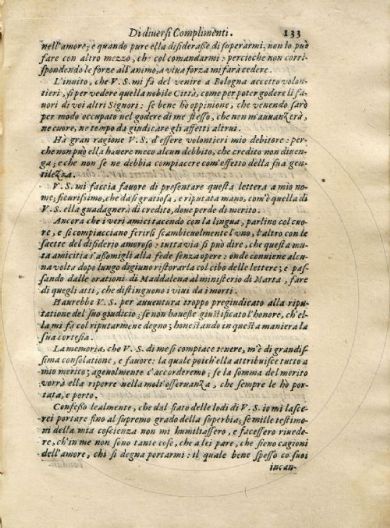 Di diuersi Complimenti. 133
nell'amore; e quando pure ella disiderasse di superarmi, non lo può
fare con altro mezzo, che col comandarmi: percioche non corri-
spondendo le forze all'animo, a viua forza mi farà cedere.
L'inuito, che V. S. mi fà del venire a Bologna accetto volon-
tieri, sì per vedere quella nobile Città, come per poter godere li fa-
uori di voi altri Signori: se bene hò oppinione, che venendo sarò
per modo occupato nel godere di me stesso, che non m'auanzerà,
ne cuore, ne tempo da giudicare gli affetti altrui.
Hà gran ragione V. S. d'essere volontieri mio debitore: per-
che non può ella hauere meco alcun debbito, che credito non diuen-
ga; e che non se ne debbia compiacere com'effetto della sua gen-
tilezza.
V. S. mi faccia fauore di presentare questa lettera a mio no-
me; sicurissimo, che da sì gratiosa, e riputata mano, com'è quella di
V. S. ella guadagnerà di credito, doue perde di merito.
Ancora che i veri amici tacendo con la lingua, parlino col cuo-
re, e si compiacciano ferirsi scambieuolmente l'vno, l'altro con le
saette del disiderio amoroso: tuttauia si può dire, che questa mu-
ta amicitia s'assomigli alla fede senza opere: onde conuiene alcu-
na volta dopo lungo digiuno ristorarla col cibo delle lettere; e pas-
sando dalle orationi di Maddalena al ministerio di Marta, fare
di quegli atti, che distinguono i viui da i morti.
Haurebbe V. S. per auuentura troppo pregiudicato alla ripu-
tatione del suo giudicio; se non hauesse giustificato l'honore, ch'el-
la mi fà col riputarmene degno; honestando in questa maniera la
sua cortesia.
La memoria, che V. S. di me si compiace tenere, m'è di grandis-
sima consolatione, e fauore: la quale poich'ella attribuisce tutto a
mio merito; ageuolmente c'accorderemo; se la somma del merito
vorrà ella riporre nella molt'osseruanza, che sempre le hò por-
tata, e porto.
Confesso lealmente, che dal fiato delle lodi di V. S. io mi lasce-
rei portare fino al supremo grado della superbia; se mille testimo-
ni della mia coscienza non mi humiliassero, e facessero riuede-
re, ch'in me non sono tante cose, che a lei pare, che sieno cagioni
dell'amore, chi si degna portarmi: il quale bene spesso co' suoi
incan-